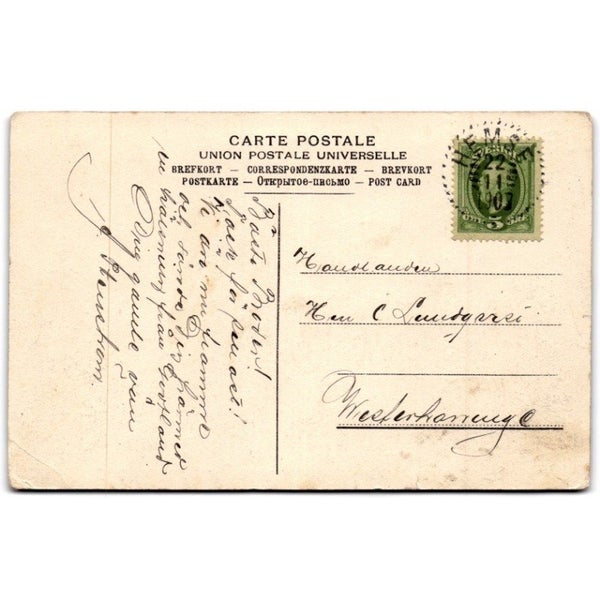 CARTE POSTALE
UNION POSTALE UNIVERSELLE
BREFKORT – CORRESPONDENZKARTE – BREVKORT
POSTKARTE – Открытое-письмо – POST CARD
HEMSE
22
11
SVERIGE
5
Handlanden
Herr C Lundqvist
Westerhaninge
Bäste Broder!
Tack för senast!
Vi äro nu framme
och sända Dig härmed
en hälsning från Gottland
Ding gamle vän
J Stenstrom.